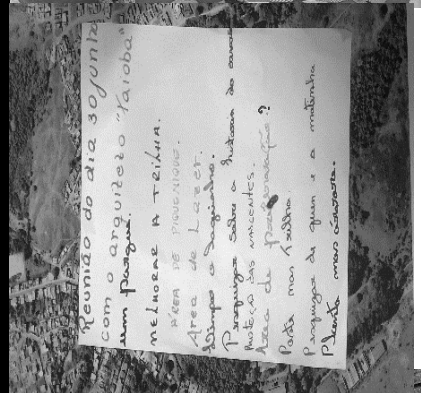 Reunião do dia 30 junho
com o arquiteto "Yaioba"
um Parque.
MELHORAR A TRILHA.
ÁREA DE PIQUENIQUE.
Area de Lazer.
Limpa a lagoinha.
Pesquisar sobre a historia do
Proteção das NASCENTES.
Area de preservação?
Peda mas trilha.
Pesquisar de quem e a matinha
Planta mas árvore.